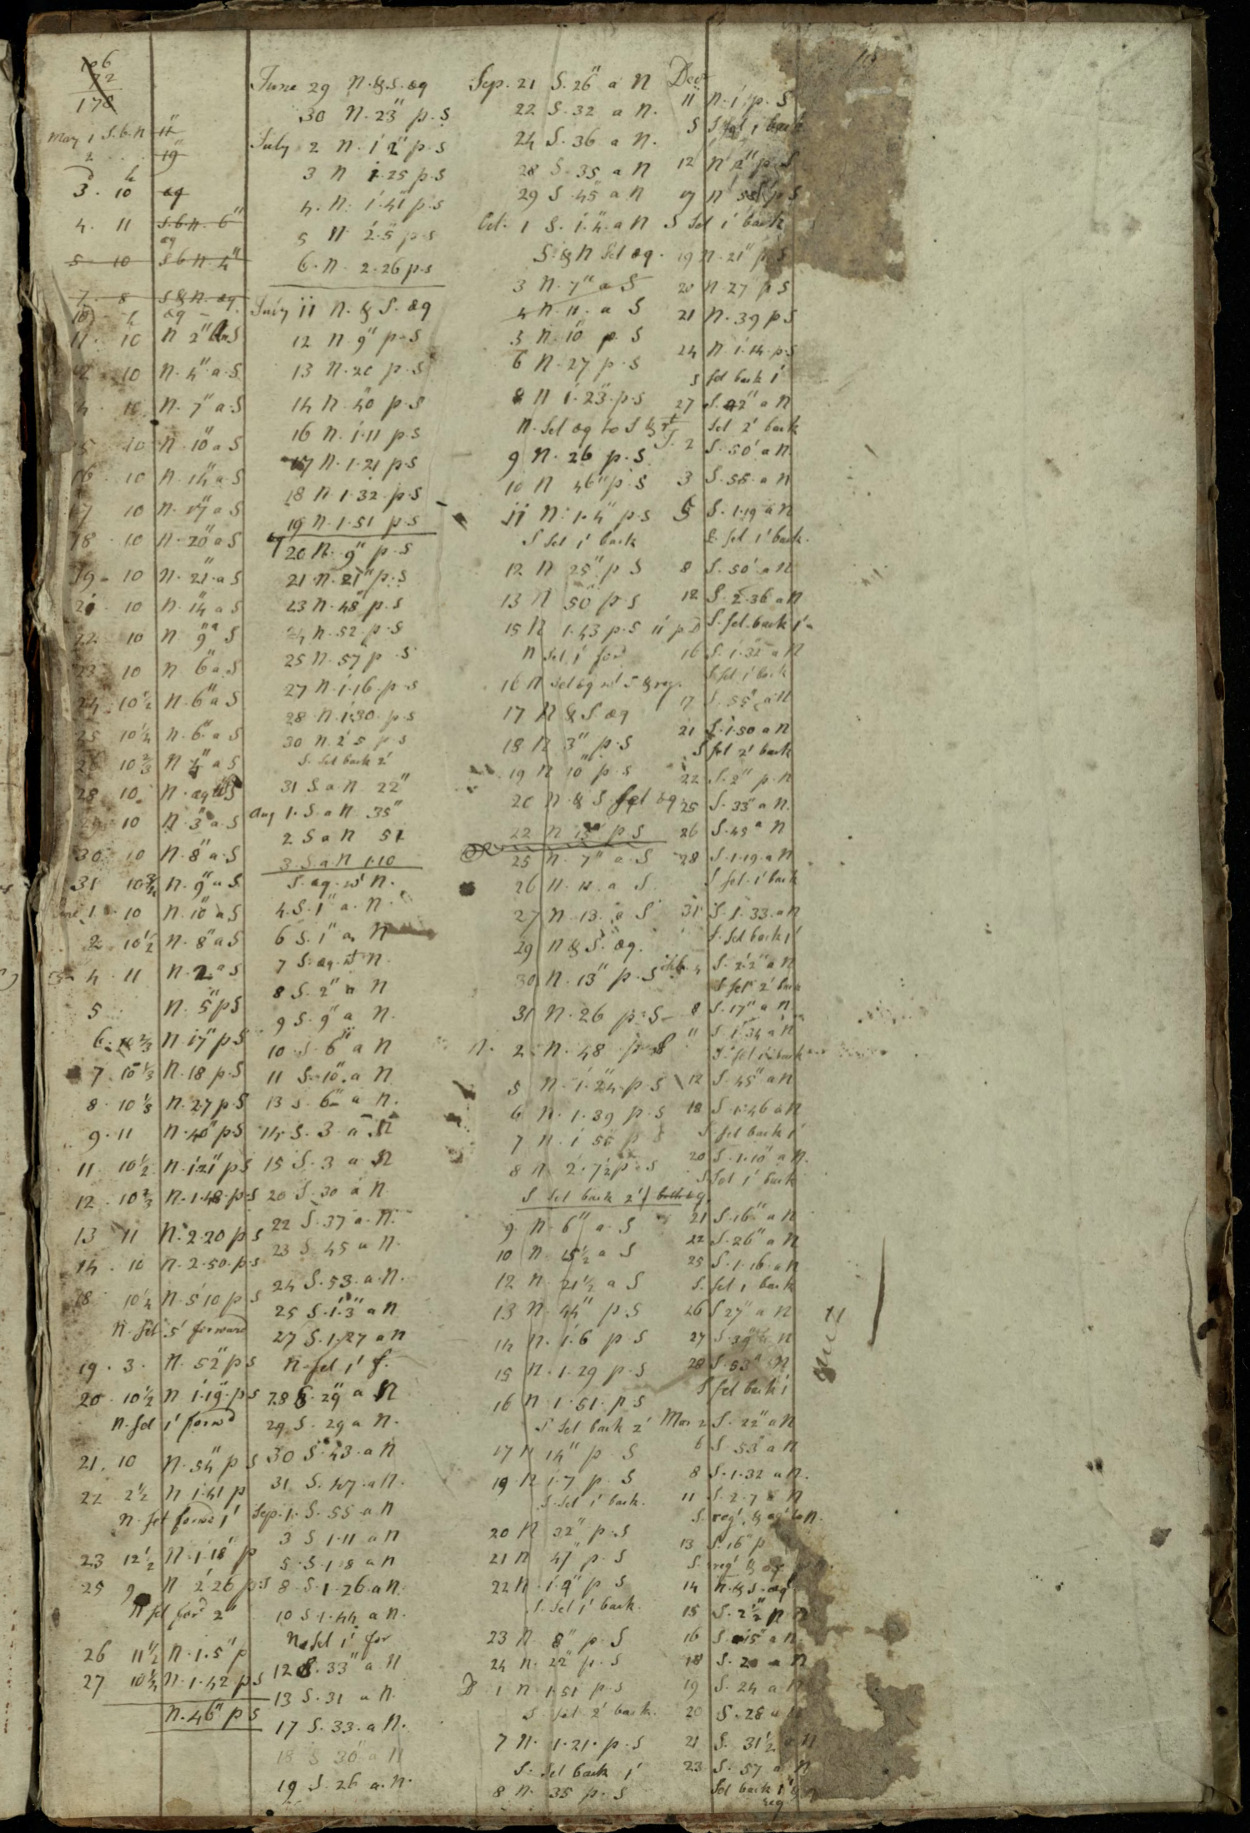 106
72
178
May 1 S.b.N 11"
2 19"
h
3. 10 æq
4. 11 S.b.N. 6"
æq
5 10 S b N 4"
7. 8 S & N. æq
10 æq
11. 10 N 2" a S
12 10 N. 4" a. S
10 N. 7" a S
15 10 N. 10" a S
16 10 N. 14" a S
17 10 N. 17" a S
18 10 N. 20" a S
19 10 N. 21" a S
21 10 N. 14" a S
22 10 N 9" a S
23 10 N 6" a S
24 10½ N. 6" a S
25 10¼ N. 6" a S
10⅔ N 4" a S
28 10 N. æq w S
10 N. 3" a S
30 10 N. 8" a S
31 10¾ N. 9" a S
1. 10 N. 10" a S
2 10½ N. 8" a S
4. 11 N. 2" a S
5 N. 5" p S
6. ⅔ N 17" p S
7. 10⅓ N. 18 p S
8. 10⅓ N. 27 p S
9. 11 N. 40" p S
11. 10½ N. 1'21" p S
12. 10⅔ N. 1.48. p. S
13 11 N. 2.20 p S
14. 10 N. 2.50. p. S
18 10¼ N. 5'10 p S
N. set 5' forward
19. 3. N. 52" p s
20. 10½ N 1'.19". p s
N. set 1' forwd
21. 10 N. 54" p S
22 2½ N 1.41 p
N. set forwd 1'
23 12½ N. 1.18" p
25 9 N 2'26 p S
N set forwd 2'
26 11½ N. 1.5" p
27 10¾ N. 1.42 p s
N. 46" p S
June 29 N. & S. æq
30 N. 23" p. S
July 2 N. 1'2" p. s
3 N 1.25 p. s
4. N. 1.41" p. s
5 N 2.5" p. s
6. N. 2.26 p. s
July 11 N. & S. æq
12 N 9" p. S
13 N. 20 p. S
14 N. 40 p. S
16 N. 1.11 p. S
17 N. 1.21 p. S
18 N. 1.32. p. S
19 N. 1.51 p. S
20 N. 9" p. S
21 N. 21" p. s
23 N. 48" p. s
24 N. 52 p. S
25 N. 57 p. S
27 N. 1.16. p. s
28 N. 1.30. p. s
30 N. 2'5 p s
S. set back 2'
31 S a N 22"
Aug 1. S a N 35"
2 S a N 51
3 S a N 1.10
S. æq. w' N.
4. S. 1" a. N.
6 S. 1" a. N
7 S. æq. w N.
8 S. 2" a N
9 S. 9" a N.
10 S. 6" a N
11 S. 10". a N
13 S. 6" a N.
14 S. 3. a N
15 S. 3 a N
20 S. 30 a N
22 S. 37 a. N.
23 S. 45 a N.
24 S. 53. a. N.
25 S. 1'.3" a N
27 S. 1.27 a N
N. set 1' f.
28 S. 29" a N
29. S. 29 a N.
30 S. 43. a N
31. S. 47. a N.
Sep. 1. S. 55 a N
3 S 1.11 a N
5. S. 1.18 a N
8. S. 1.26. a N.
10 S. 1.44. a N.
N. set 1' for
12 S. 33" a N
13 S. 31 a N.
17 S. 33. a N.
18 S 30" a N
19 S. 26 a. N.
Sep. 21 S. 26" a N
22 S. 32 a N.
24 S. 36 a N.
28 S. 35 a N
29 S. 45" a N
Oct. 1 S. 1'.4. a N
S. & N set æq.
3 N. 7" a S
4 N. 11. a S
5 N. 10" p. S
6 N. 27 p. S
8 N 1'.23". p. s
N. set æq to S &
9 N. 26 p. S.
10 N 46" p. S
11 N. 1.4" p. s
S set 1' back
12 N 25" p S
13 N 50" p. S
15 N 1.43 p. S
N set 1' for
16 N set æq w' S & reg.
17 N & S æq
18 N 3" p. S
19 N 10" p. S
20 N. & S set æq
22 N 13" p S
25 N. 7" a. S
26 N. 12. a S.
27 N. 13. a S
29 N & S. æq.
30. N. 13" p. S
31 N. 26 p. S
N. 2. N. 48 p. S
5 N. 1.24. p. S
6 N. 1.39 p. S
7 N. 1 56" p S
8 N. 2.7½ p. S
S set back 2' / both æq
9 N. 6" a. S
10 N. 15½ a S
12 N. 21½ a S
13 N. 44" p. S
14 N. 1'.6 p. S
15 N. 1.29 p. S
16 N. 1.51. p S
S set back 2'
17 N 14" p. S
19 N 1.7 p. S
S. set 1' back.
20 N 32" p. s
21 N. 47" p. S
22 N. 1.9" p. S
S. set 1' back.
23 N 8" p. S
24 N. 22" p. S
D. 1 N 1.51 p. S
S. set 2' back.
7 N. 1.21. p. S
S. set back 1'
8 N. 35 p. S
Decr
11 N. 1'. p. S
S 1 back
12 N 2" p. S
17 N 55" p S
S set 1' back
19 N. 21" p S
20 N. 27 p S
21 N. 39 p S
24 N 1.14. p. s
S set back 1'
27 S. 42" a N
Set 2' back
J. 2 S. 50" a N.
3 S. 55. a N
5 S. 1.19 a N
S. set 1' back.
8 S. 50'. a N
12 S. 2.36 a N
S. set. back 1'
16 S. 1.32" a N
S set 1' back
17 S. 55" a N
21 S. 1.50 a N
S set 2' back
22 S. 2" p. N
25 S. 33" a N.
26 S. 43 a N
28 S. 1.19. a N
S set. 1' back
31 S. 1.33. a N
S. set back 1'
4 S. 2'2" a N
S set 2' back
8 S. 17" a N
11 S. 1.34 a N
S. set 1' back
12 S. 45" a N
18 S. 1.46 a N
S set back 1'
20 S. 1.10" a N.
S set 1' back
21 S. 16" a N
22 S. 26" a N
25 S. 1.16. a N
S. set 1 back
26 S 27" a N
27 S. 39" a N
28 S. 53" N
S set back 1'
Mar 2 S. 22" a N
6 S 53" a N
8 S. 1.32 a N.
11 S. 2.7 a N
S. reg'. & æq' to N.
13 S 16" p
S. reg' & æq
14 N. & S. æq'
15 S. 2½" p. N
16 S. 15" a N
18 S. 20 a N
19 S. 24 a N
20 S. 28 a N
21 S. 31½ a N
23 S. 57 a N
Set back 1' &
reg